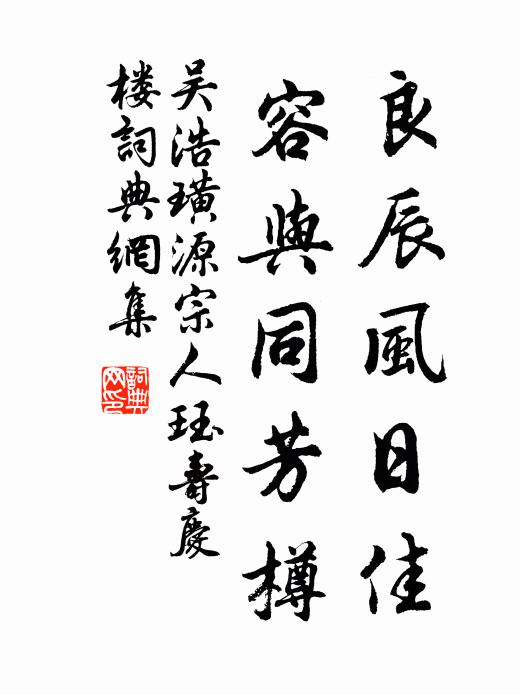 良辰風日佳
容與同芳樽
吴浩璜源宗人珏壽慶
楼詞典網集
詞典网印